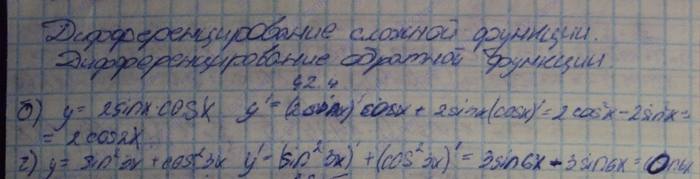 Дифференцирование сложной функции.
Дифференцирование обратной функции.
42.4
б) y = 2sinx cosx y' = (2sinx)' cosx + 2sinx(cosx)' = 2cos²x - 2sin²x =
= 2cos2x
г) y = sin²3x + cos²3x y' = (sin²3x)' + (cos²3x)' = 3sin6x - 3sin6x = 0